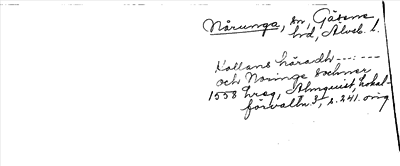 Nårunga, sn, Gäsene
hd, Älvsb. l.
Kullans häradh --- : ---
och Noringe sochner
1558 hreg, Almquist, Lokal-
förvaltn. 3, s. 241. orig